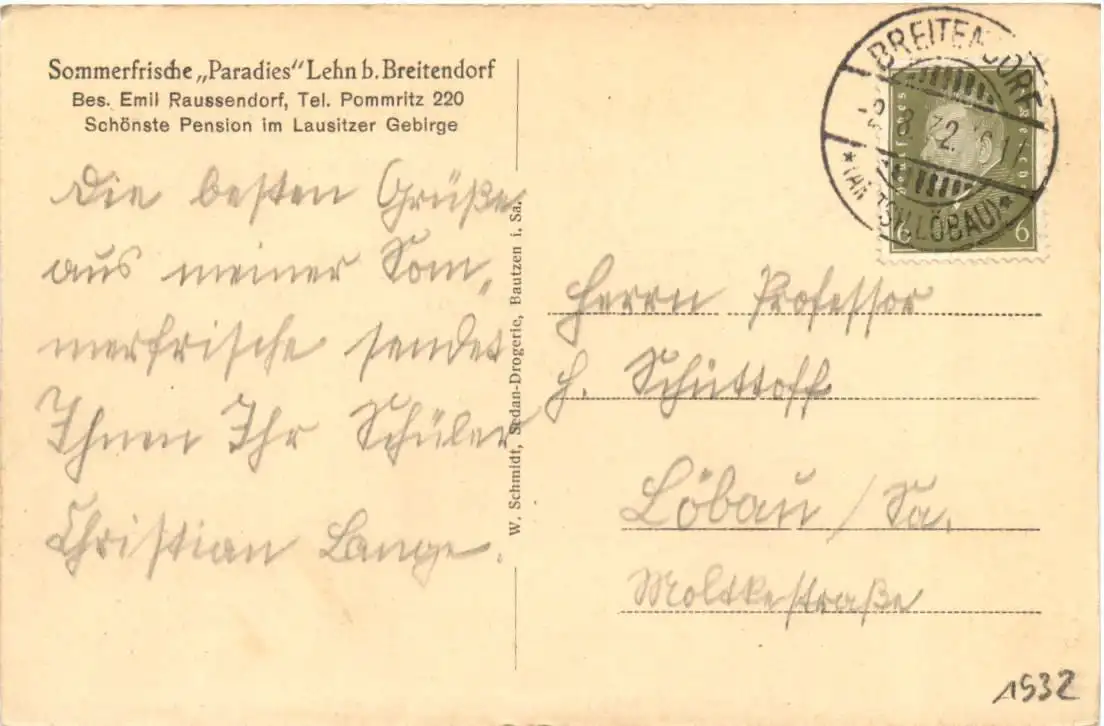 Sommerfrische „Paradies" Lehn b. Breitendorf
Bes. Emil Raussendorf, Tel. Pommritz 220
Schönste Pension im Lausitzer Gebirge
Die besten Grüße
aus meiner Som„
merfrische sendet
Ihnen Ihr Schüler
Christian Lange.
W. Schmidt, Sedan-Drogerie, Bautzen i. Sa.
BREITENDORF
8. 32. 17
(AMTSH. LÖBAU)
6 6
Herrn Professor
H. Schüttoff
Löbau / Sa.
Moltkestraße
1932